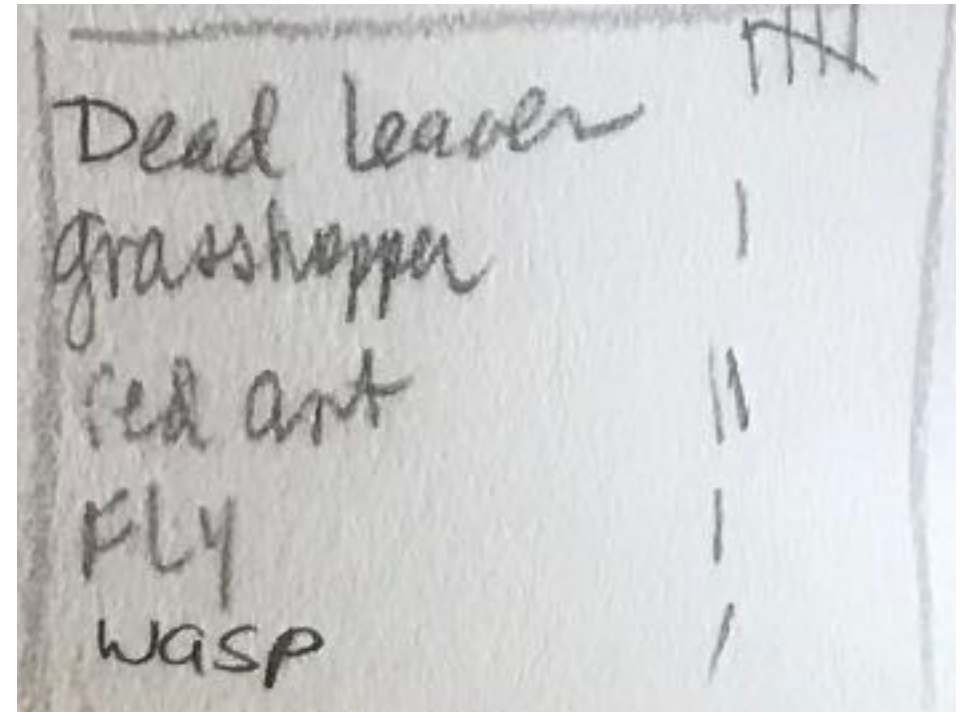 Dead leaves
grasshopper
red ant
FLy
wasp